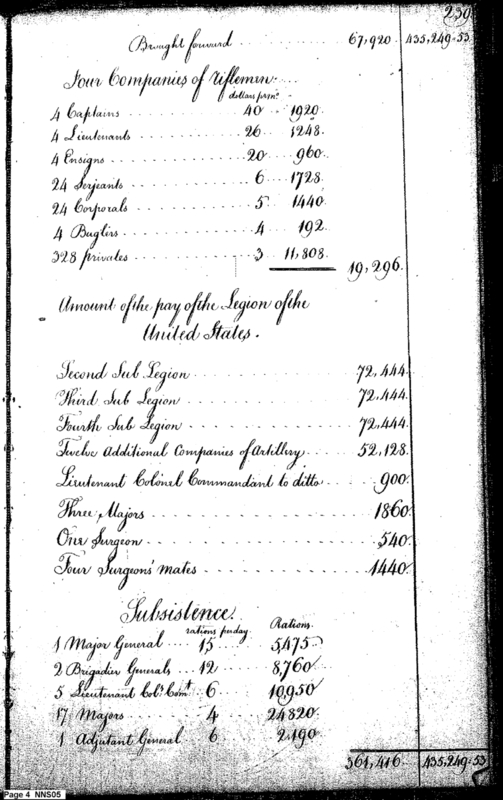 230
Brought forward 67,920. 435,249.53
Four Companies of Riflemen.
dollars pr mo.
4 Captains 40 1920.
4 Lieutenants 26 1248.
4 Ensigns 20 960.
24 Serjeants 6 1728.
24 Corporals 5 1440.
4 Buglers 4 192.
328 privates 3 11,808.
19,296.
Amount of the pay of the Legion of the
United States.
Second Sub Legion 72,444.
Third Sub Legion 72,444.
Fourth Sub Legion 72,444.
Twelve Additional Companies of Artillery 52,128.
Lieutenant Colonel Commandant to ditto 900.
Three Majors 1860.
One Surgeon 540.
Four Surgeons' mates 1440.
Subsistence.
rations per day Rations.
1 Major General 15 5,475
2 Brigadier Generals 12 8,760
5 Lieutenant Cols Comt 6 10,950
17 Majors 4 24820.
1 Adjutant General 6 2,190
361,416. 435,249.53
Page 4 NNS05